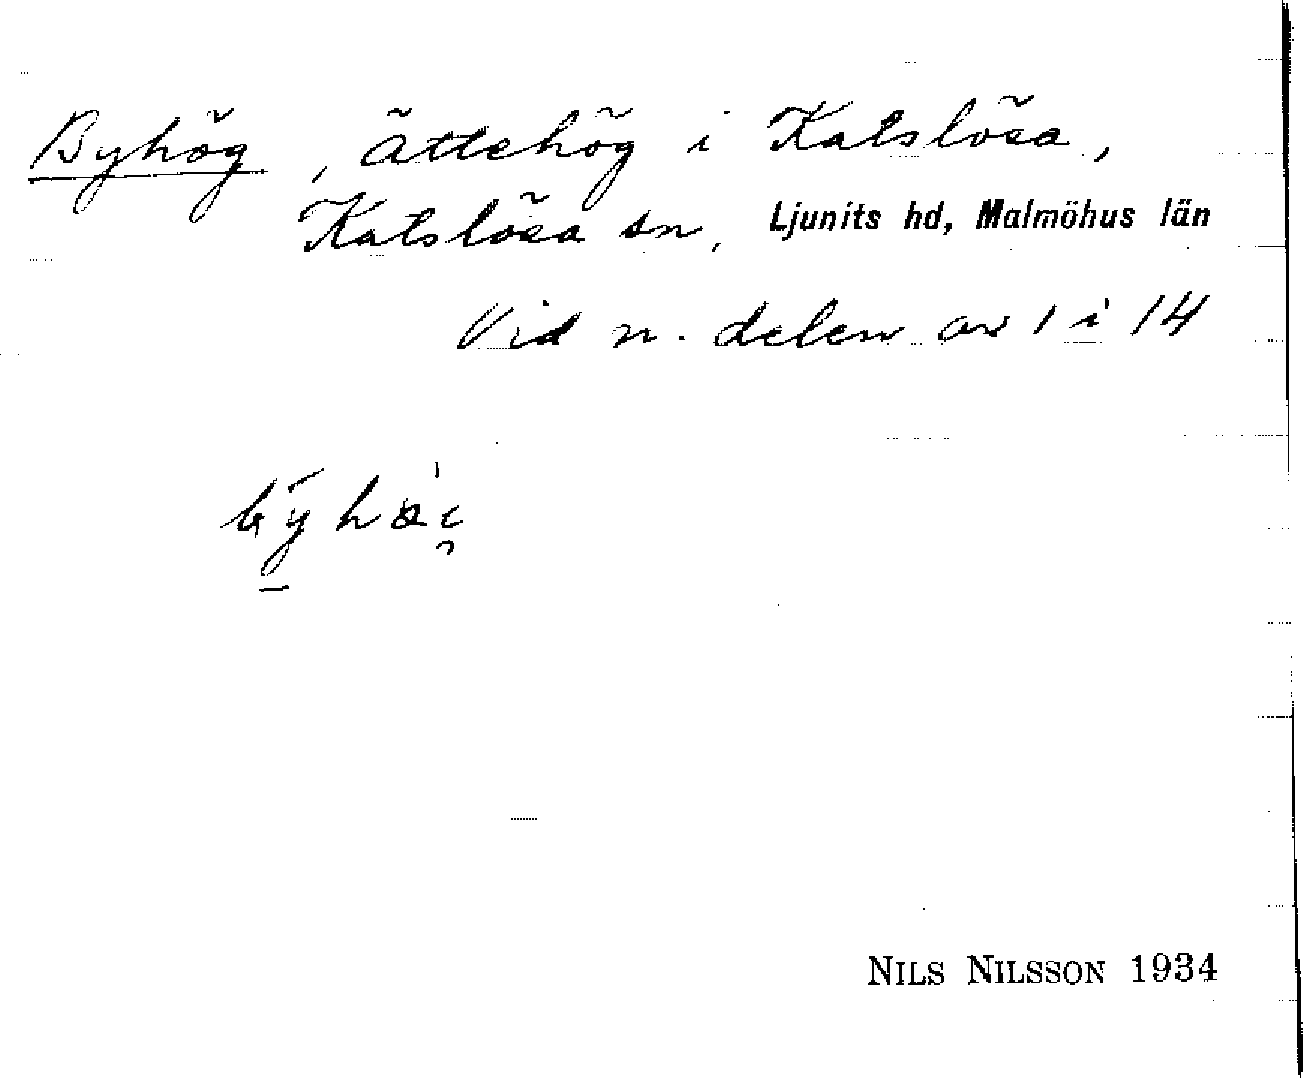 Byhög, ättehög i Katslösa,
Katslösa sn, Ljunits hd, Malmöhus län
Vid n. delen av 1 i 14
NILS NILSSON 1934